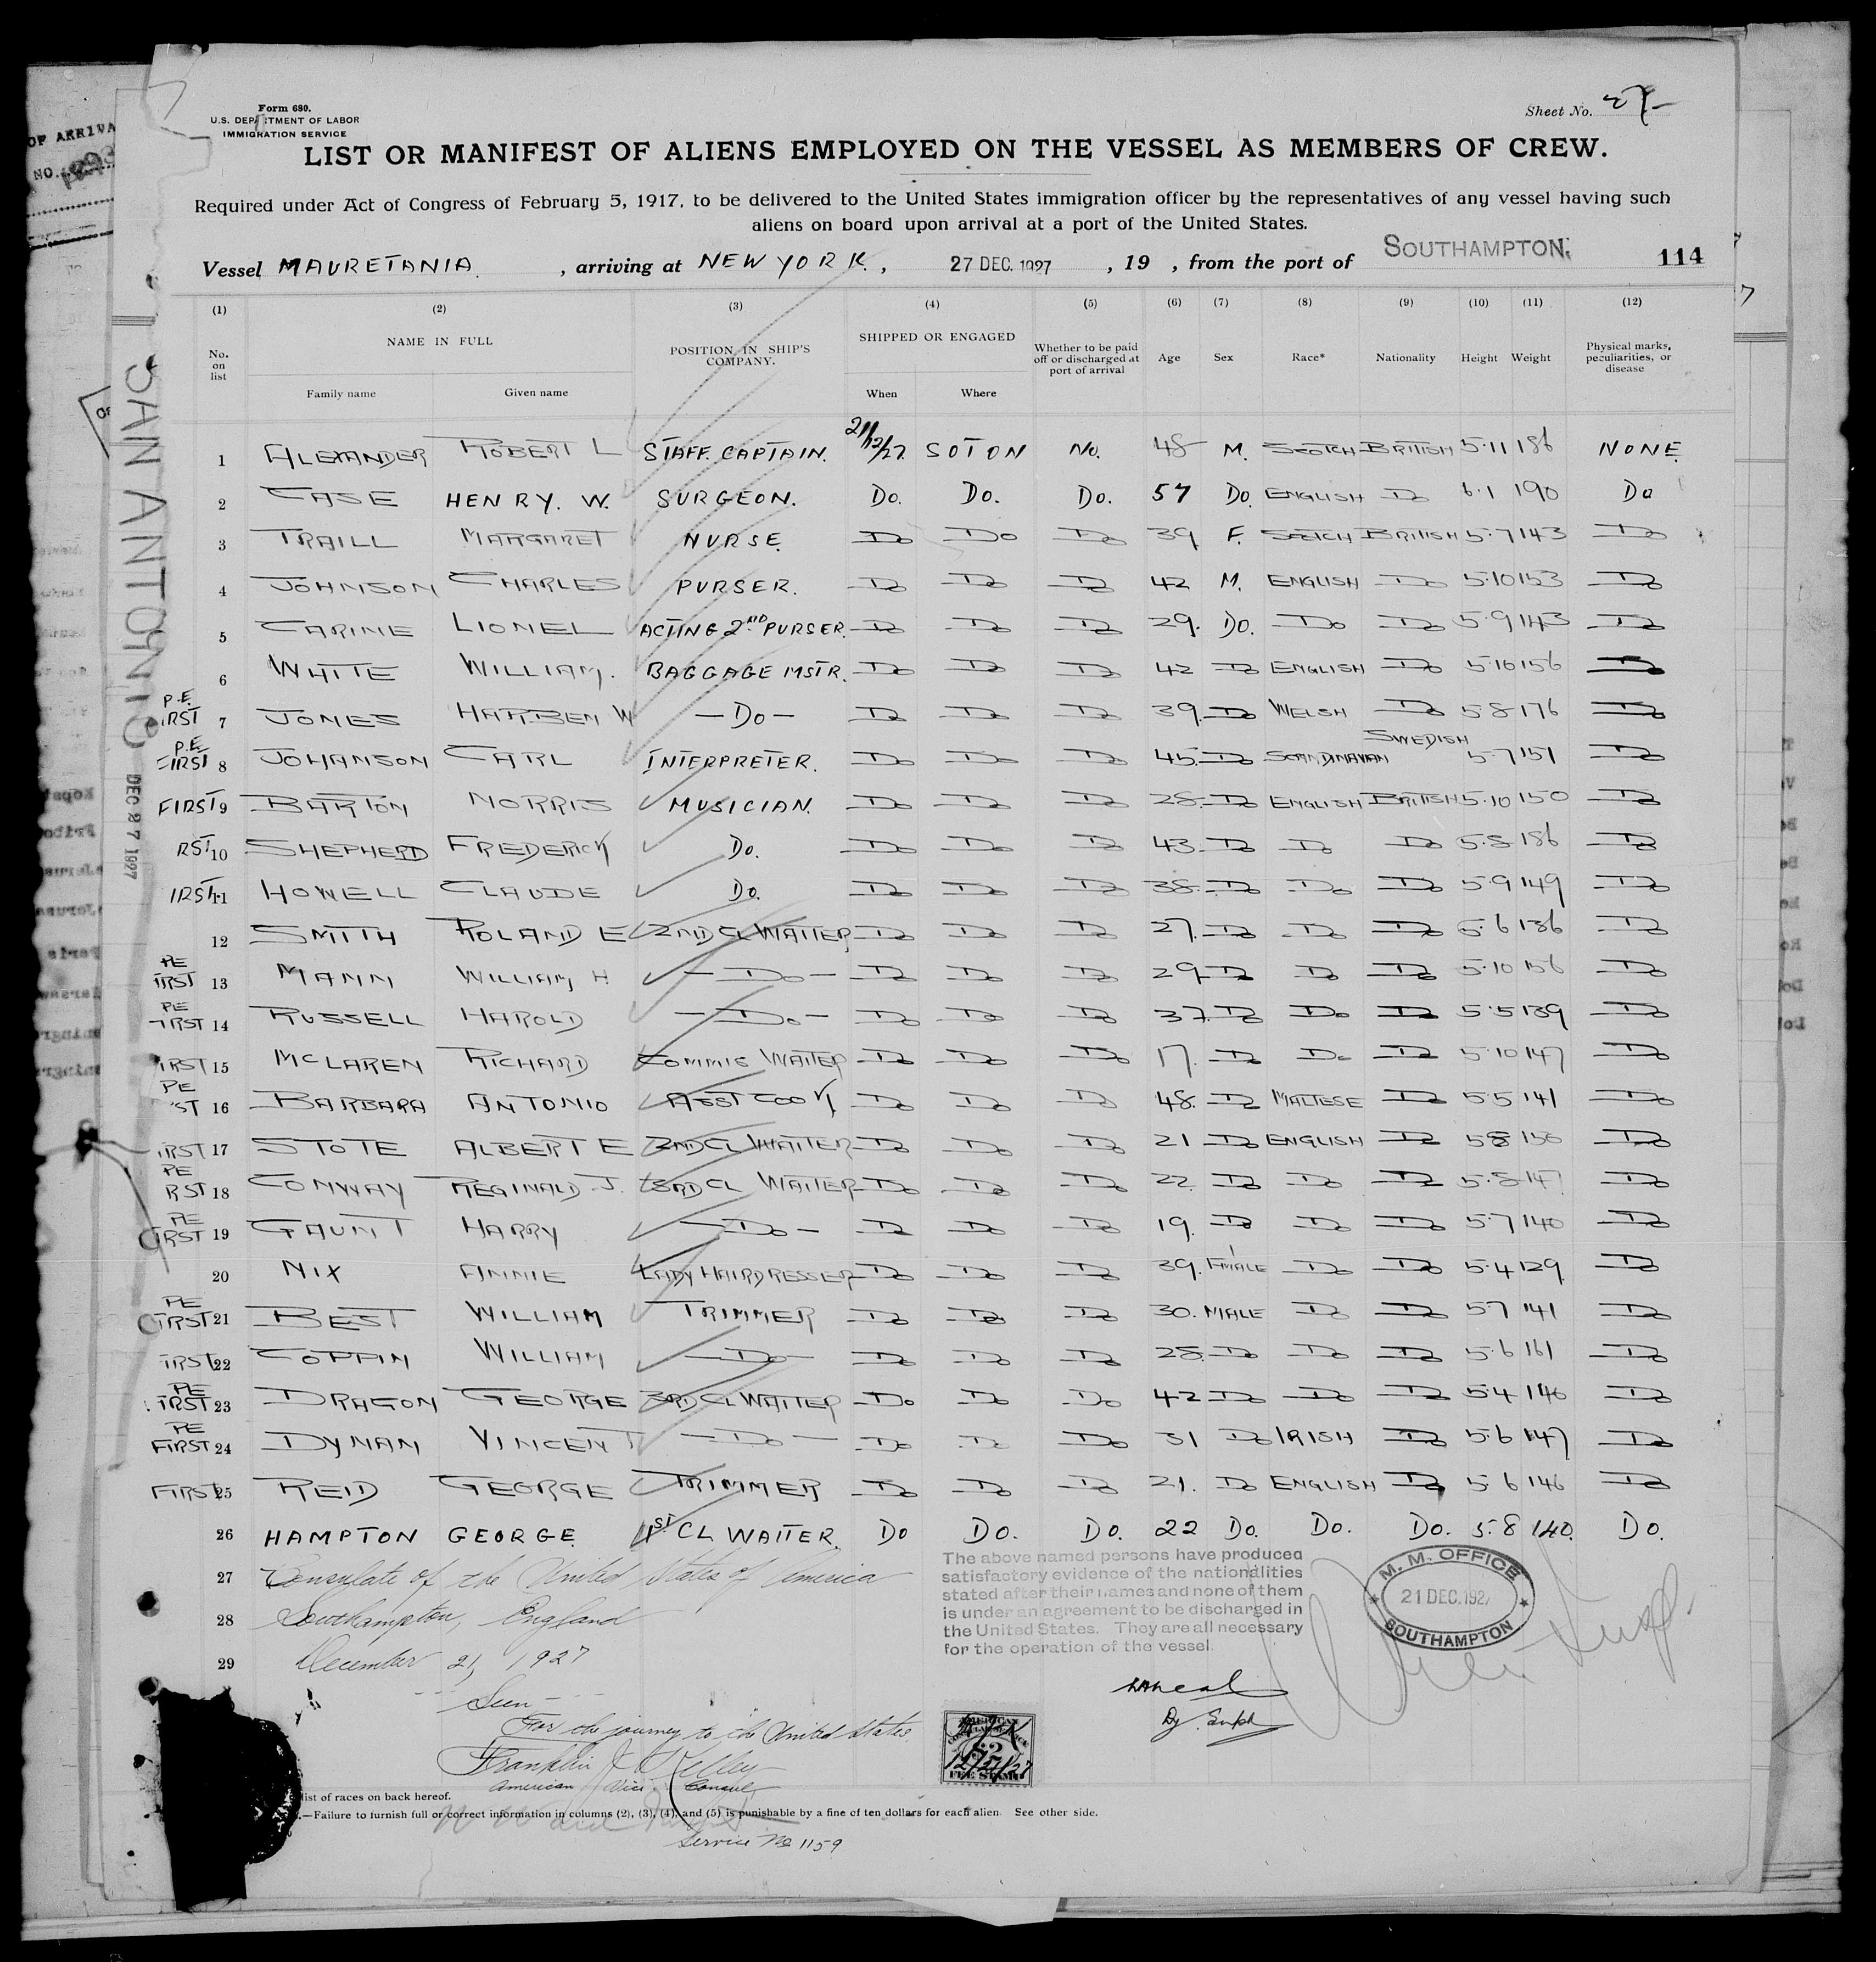 Form 680.
U.S. DEPARTMENT OF LABOR
IMMIGRATION SERVICE
Sheet No.
LIST OR MANIFEST OF ALIENS EMPLOYED ON THE VESSEL AS MEMBERS OF CREW.
Required under Act of Congress of February 5, 1917, to be delivered to the United States immigration officer by the representatives of any vessel having such
aliens on board upon arrival at a port of the United States.
Vessel MAURETANIA, arriving at NEW YORK., 27 DEC. 1927, 19 , from the port of SOUTHAMPTON. 114
(1) (2) (3) (4) (5) (6) (7) (8) (9) (10) (11) (12)
No. on list NAME IN FULL POSITION IN SHIP'S COMPANY. SHIPPED OR ENGAGED Whether to be paid off or discharged at port of arrival Age Sex Race* Nationality Height Weight Physical marks, peculiarities, or disease
Family name Given name When Where
1 ALEXANDER ROBERT L STAFF. CAPTAIN. 21/12/27. SOTON No. 48 M. SCOTCH BRITISH 5·11 186 NONE.
2 CASE HENRY. W. SURGEON. Do. Do. Do. 57 Do. ENGLISH Do 6·1 190 Do
3 TRAILL MARGARET NURSE. Do Do Do 39 F. SCOTCH BRITISH 5·7 143 Do
4 JOHNSON CHARLES PURSER. Do Do Do 42 M. ENGLISH Do 5·10 153 Do
5 CARINE LIONEL ACTING 2ND PURSER. Do Do Do 29. Do. Do Do 5·9 143 Do
6 WHITE WILLIAM. BAGGAGE MSTR. Do Do Do 42 Do ENGLISH Do 5·10 156 Do
P.E. IRST 7 JONES HARBEN W — Do — Do Do Do 39. Do WELSH Do 5·8 176 Do
P.E. FIRST 8 JOHANSON CARL INTERPRETER. Do Do Do 45. Do SCANDINAVIAN SWEDISH 5·7 151 Do
FIRST 9 BARTON NORRIS MUSICIAN. Do Do Do 28. Do ENGLISH BRITISH 5·10 150 Do
RST 10 SHEPHERD FREDERICK Do. Do Do Do 43. Do Do Do 5·8 186 Do
IRST 11 HOWELL CLAUDE Do. Do Do Do 38. Do Do Do 5·9 149 Do
12 SMITH ROLAND E 2ND CL WAITER Do Do Do 27. Do Do Do 5·6 136 Do
PE IRST 13 MANN WILLIAM H — Do — Do Do Do 29 Do Do Do 5·10 156 Do
PE IRST 14 RUSSELL HAROLD — Do — Do Do Do 37. Do Do Do 5·5 139 Do
IRST 15 McLAREN RICHARD COMMIS WAITER Do Do Do 17. Do Do Do 5·10 147 Do
PE ST 16 BARBARA ANTONIO ASST COOK Do Do Do 48. Do MALTESE Do 5·5 141 Do
IRST 17 STOTE ALBERT E 2ND CL WAITER Do Do Do 21 Do ENGLISH Do 5·8 150 Do
PE RST 18 CONWAY REGINALD J. 3RD CL WAITER Do Do Do 22 Do Do Do 5·8 147 Do
PE IRST 19 GAUNT HARRY — Do — Do Do Do 19. Do Do Do 5·7 140 Do
20 NIX ANNIE LADY HAIRDRESSER Do Do Do 39. FMALE Do Do 5·4 129 Do
PE IRST 21 BEST WILLIAM TRIMMER Do Do Do 30. MALE Do Do 5·7 141 Do
IRST 22 COPPIN WILLIAM — Do — Do Do Do 28. Do Do Do 5·6 161 Do
PE IRST 23 DRAGON GEORGE 3RD CL WAITER Do Do Do 42 Do Do Do 5·4 140 Do
PE FIRST 24 DYNAN VINCENT — Do — Do Do Do 31 Do IRISH Do 5·6 147 Do
FIRST 25 REID GEORGE TRIMMER Do Do Do 21. Do ENGLISH Do 5·6 146 Do
26 HAMPTON GEORGE. 1ST CL WAITER. Do Do. Do. 22 Do. Do. Do. 5·8 140. Do.
27 Consulate of the United States of America
28 Southampton, England
29 December 21, 1927
Seen
For the journey to the United States.
Franklin J Kelley
American Vice Consul
The above named persons have produced
satisfactory evidence of the nationalities
stated after their names and none of them
is under an agreement to be discharged in
the United States. They are all necessary
for the operation of the vessel.
Dy. Supt
M. M. OFFICE
21 DEC. 192
SOUTHAMPTON
AMERICAN
$2
12/21/27
FEE STAMP
list of races on back hereof.
.—Failure to furnish full or correct information in columns (2), (3), (4), and (5) is punishable by a fine of ten dollars for each alien. See other side.
Service No 1159
SAN ANTONIO
DEC 27 1927
OF ARRIVA
NO.